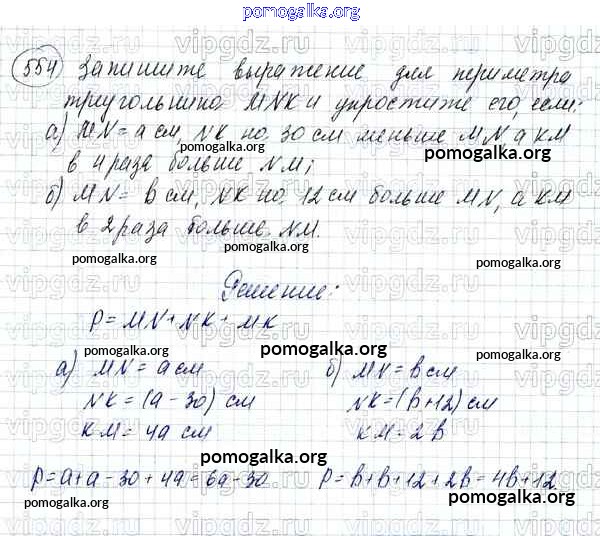 pomogalka.org
554 Запишите выражение для периметра
треугольника MNK и упростите его, если:
а) MN = a см, NK на 30 см меньше MN, а KM
в 4 раза больше NM;
б) MN = b см, NK на 12 см больше MN, а KM
в 2 раза больше NM.
Решение:
P = MN + NK + MK
а) MN = a см
NK = (a - 30) см
KM = 4a см
P = a + a - 30 + 4a = 6a - 30
б) MN = b см
NK = (b + 12) см
KM = 2b
P = b + b + 12 + 2b = 4b + 12